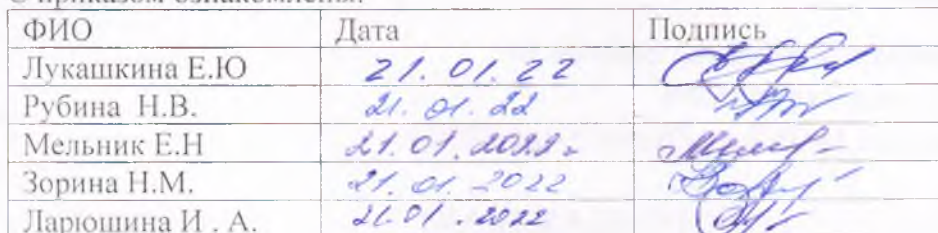 С приказом ознакомлены:
ФИО Дата Подпись
Лукашкина Е.Ю 21.01.22
Рубина Н.В. 21.01.22
Мельник Е.Н 21.01.2022г
Зорина Н.М. 21.01.2022
Ларюшина И . А. 21.01.2022